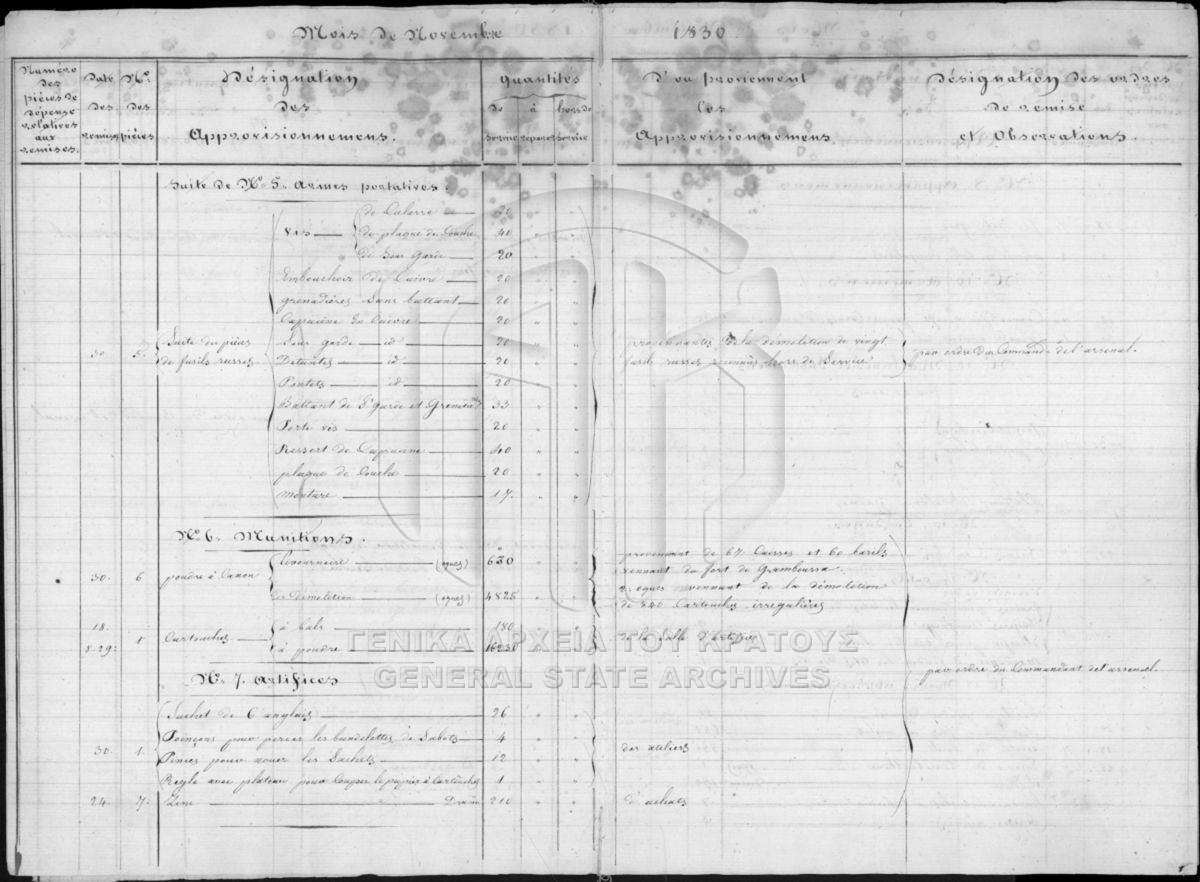 Mois de Novembre 1830
Numéro des pièces de dépense relatives aux remises.
Date des remises
Nos. des pièces
Désignation des Approvisionnemens.
Quantités
de service
à réparer
hors de service
D'ou proviennent les Approvisionnemens.
Désignation des ordres de remise et Observations.
Suite de No. 5. Armes portatives.
30 5. Suite des pièces de fusils russes
Vis de Culasse 20
de plaque de Couche 40
de Sous Garde 20
Embouchoir de Cuivre 20
grenadières sans battant 20
Capucine en Cuivre 20
Sous garde id 20
Détentes id 20
Pontets id 20
Battant de S. Garde et Grenad. 33
Porte vis 20
Ressort de Capucine 40
plaque de Couche 20
monture 17.
provenantes de la démolition de vingt
fusils russes reconnus hors de Service
par ordre du Commandt. de l'arsenal.
No. 6. Munitions.
30. 6 poudre à Canon
(oques) 680
de démolition (oques) 4825
provenant de 67 Caisses et 60 barils
vennant du fort de Grambousa
oques provennant de la démolition
de 840 Cartouches irregulières
18. & 29. 1 Cartouches
à bals 180
à poudre 16230
de la Salle d'artifice
par ordre du Commandant de l'arsenal.
No. 7. Artifices
Sachet de 6 anglais 26
30. 1. Poinçons pour percer les bandelettes de Sabots 4
Pinces pour nouer les Sachets 12
Règle avec plateau pour Couper le papier à Cartouches 1
des ateliers
24. 7. Zinc Dram 210
d'achats
ΓΕΝΙΚΑ ΑΡΧΕΙΑ ΤΟΥ ΚΡΑΤΟΥΣ
GENERAL STATE ARCHIVES